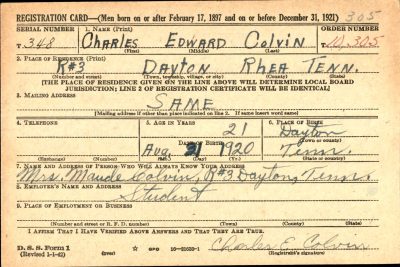 REGISTRATION CARD—(Men born on or after February 17, 1897 and on or before December 31, 1921) 305
SERIAL NUMBER 1. NAME (Print) ORDER NUMBER
T. 348 Charles Edward Colvin T. 10,305
(First) (Middle) (Last)
2. PLACE OF RESIDENCE (Print)
R#3 Dayton Rhea Tenn.
(Number and street) (Town, township, village, or city) (County) (State)
[THE PLACE OF RESIDENCE GIVEN ON THE LINE ABOVE WILL DETERMINE LOCAL BOARD
JURISDICTION; LINE 2 OF REGISTRATION CERTIFICATE WILL BE IDENTICAL]
3. MAILING ADDRESS
SAME
[Mailing address if other than place indicated on line 2. If same insert word same]
4. TELEPHONE 5. AGE IN YEARS 6. PLACE OF BIRTH
21 Dayton
DATE OF BIRTH (Town or county)
Aug. 21 1920 Tenn.
(Exchange) (Number) (Mo.) (Day) (Yr.) (State or country)
7. NAME AND ADDRESS OF PERSON WHO WILL ALWAYS KNOW YOUR ADDRESS
Mrs. Maude Colvin, R#3 Dayton, Tenn.
8. EMPLOYER'S NAME AND ADDRESS
Student
9. PLACE OF EMPLOYMENT OR BUSINESS
(Number and street or R. F. D. number) (Town) (County) (State)
I AFFIRM THAT I HAVE VERIFIED ABOVE ANSWERS AND THAT THEY ARE TRUE.
D. S. S. Form 1
(Revised 1-1-42) 16—21630-1 Charles E. Colvin